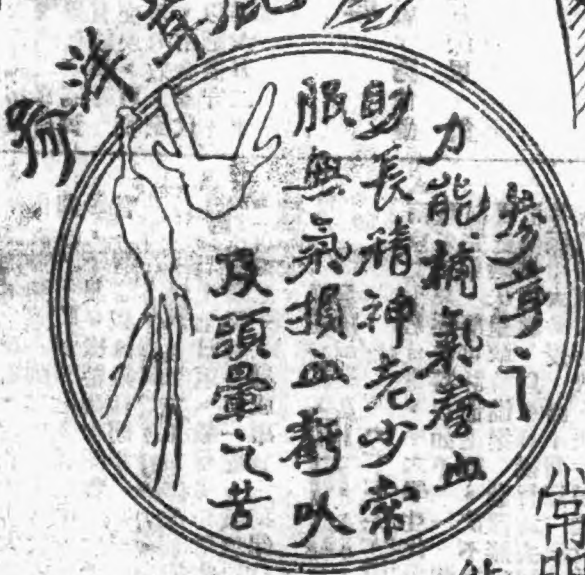 鹿茸洋參
參茸之
力能補氣養血
助長精神老少常
服無氣損血虧以
及頭暈之苦
常服